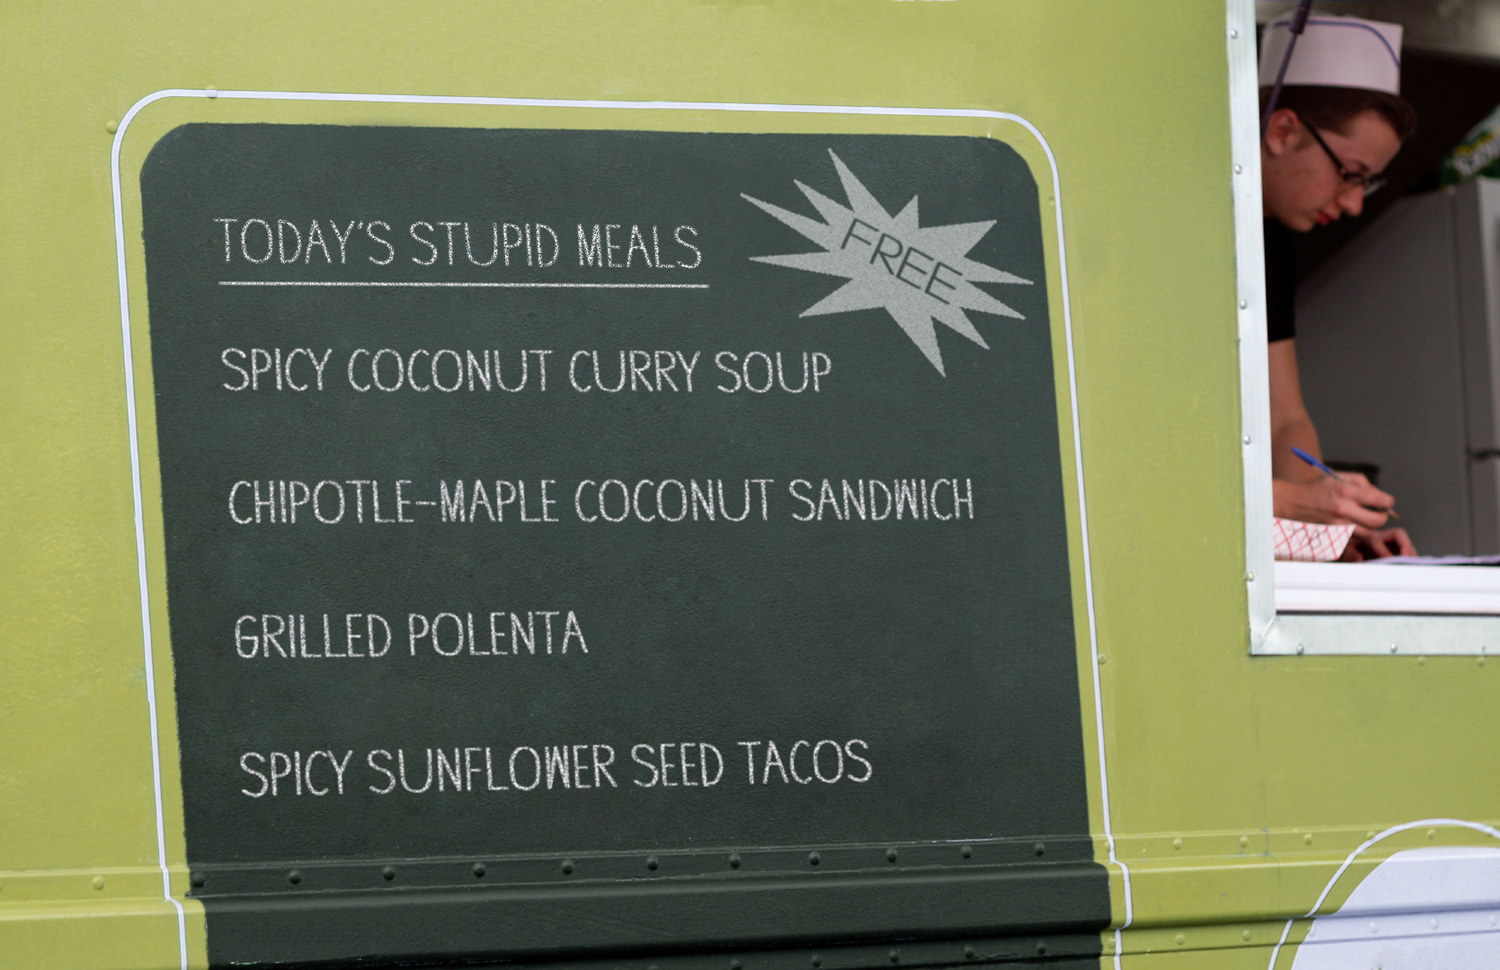 TODAY'S STUPID MEALS
FREE
SPICY COCONUT CURRY SOUP
CHIPOTLE-MAPLE COCONUT SANDWICH
GRILLED POLENTA
SPICY SUNFLOWER SEED TACOS